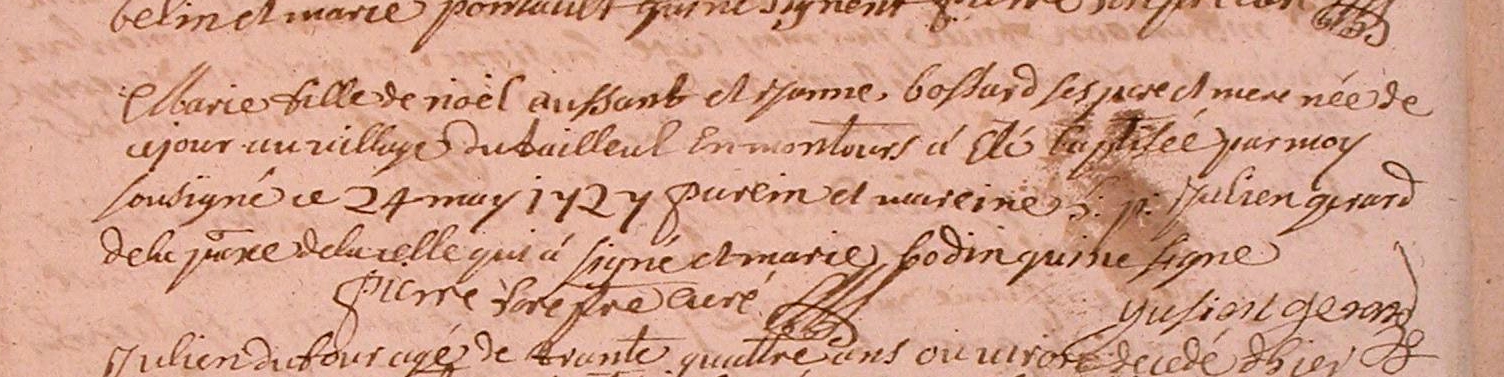 belin et marie pontault qui ne signent pierre
Marie fille de noël aussant et Janne bossard ses pere et mere née de
ce jour au village du tailleul En montours a Eté baptisée par moy
sousigné ce 24 may 1727 parein et mareine Julien gerard
de la psse de la celle qui à signé et marie bodin qui ne signe
pierre pre curé
Julient gerard
Julien dufour agé de trante quattre ans ou viron decedé d'hier